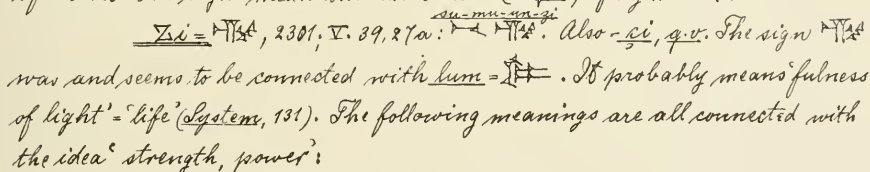 su-mu-un-zi
Zi = 𒍣, 2301; V. 39, 27a: 𒁁 𒍣. Also - ṣi, q.v. The sign 𒍣
was and seems to be connected with lum = 𒈝. It probably means 'fulness
of light' = 'life' (System, 131). The following meanings are all connected with
the idea 'strength, power':